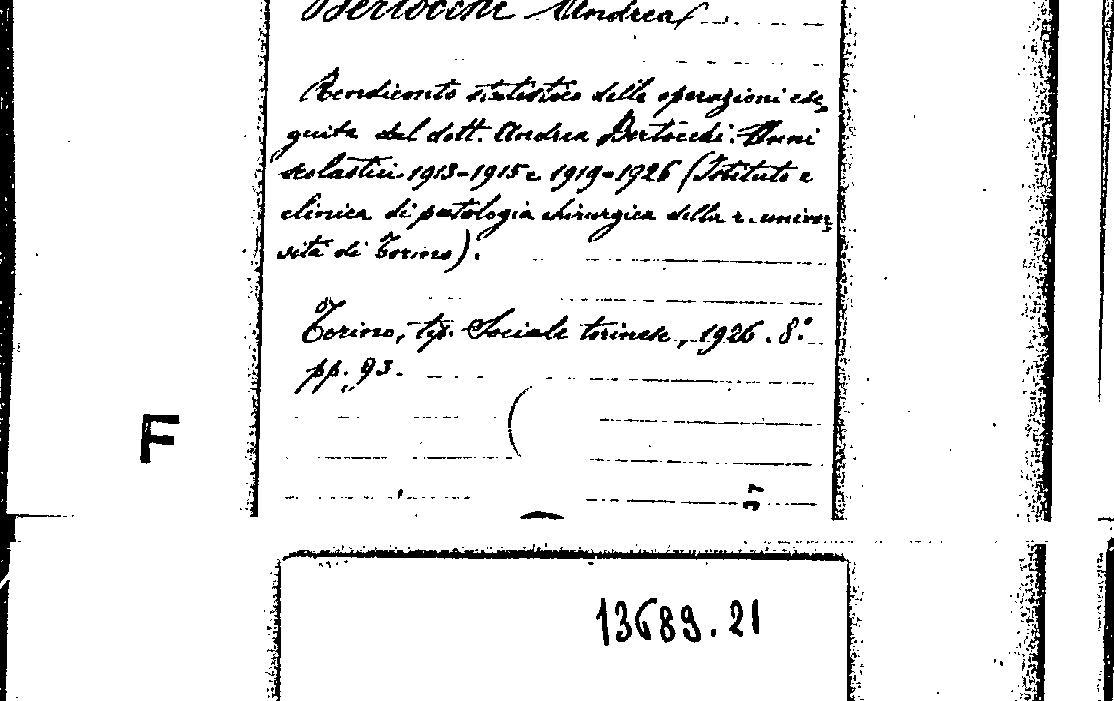 Bertocchi Andrea
Rendiconto statistico delle operazioni ese-
guite dal dott. Andrea Bertocchi. Anni
scolastici 1913-1915 e 1919-1926 (Istituto e
clinica di patologia chirurgica della r. univer-
sità di Torino).
Torino, tip. Sociale torinese, 1926. 8.°
pp. 93.
F
37
13689.21